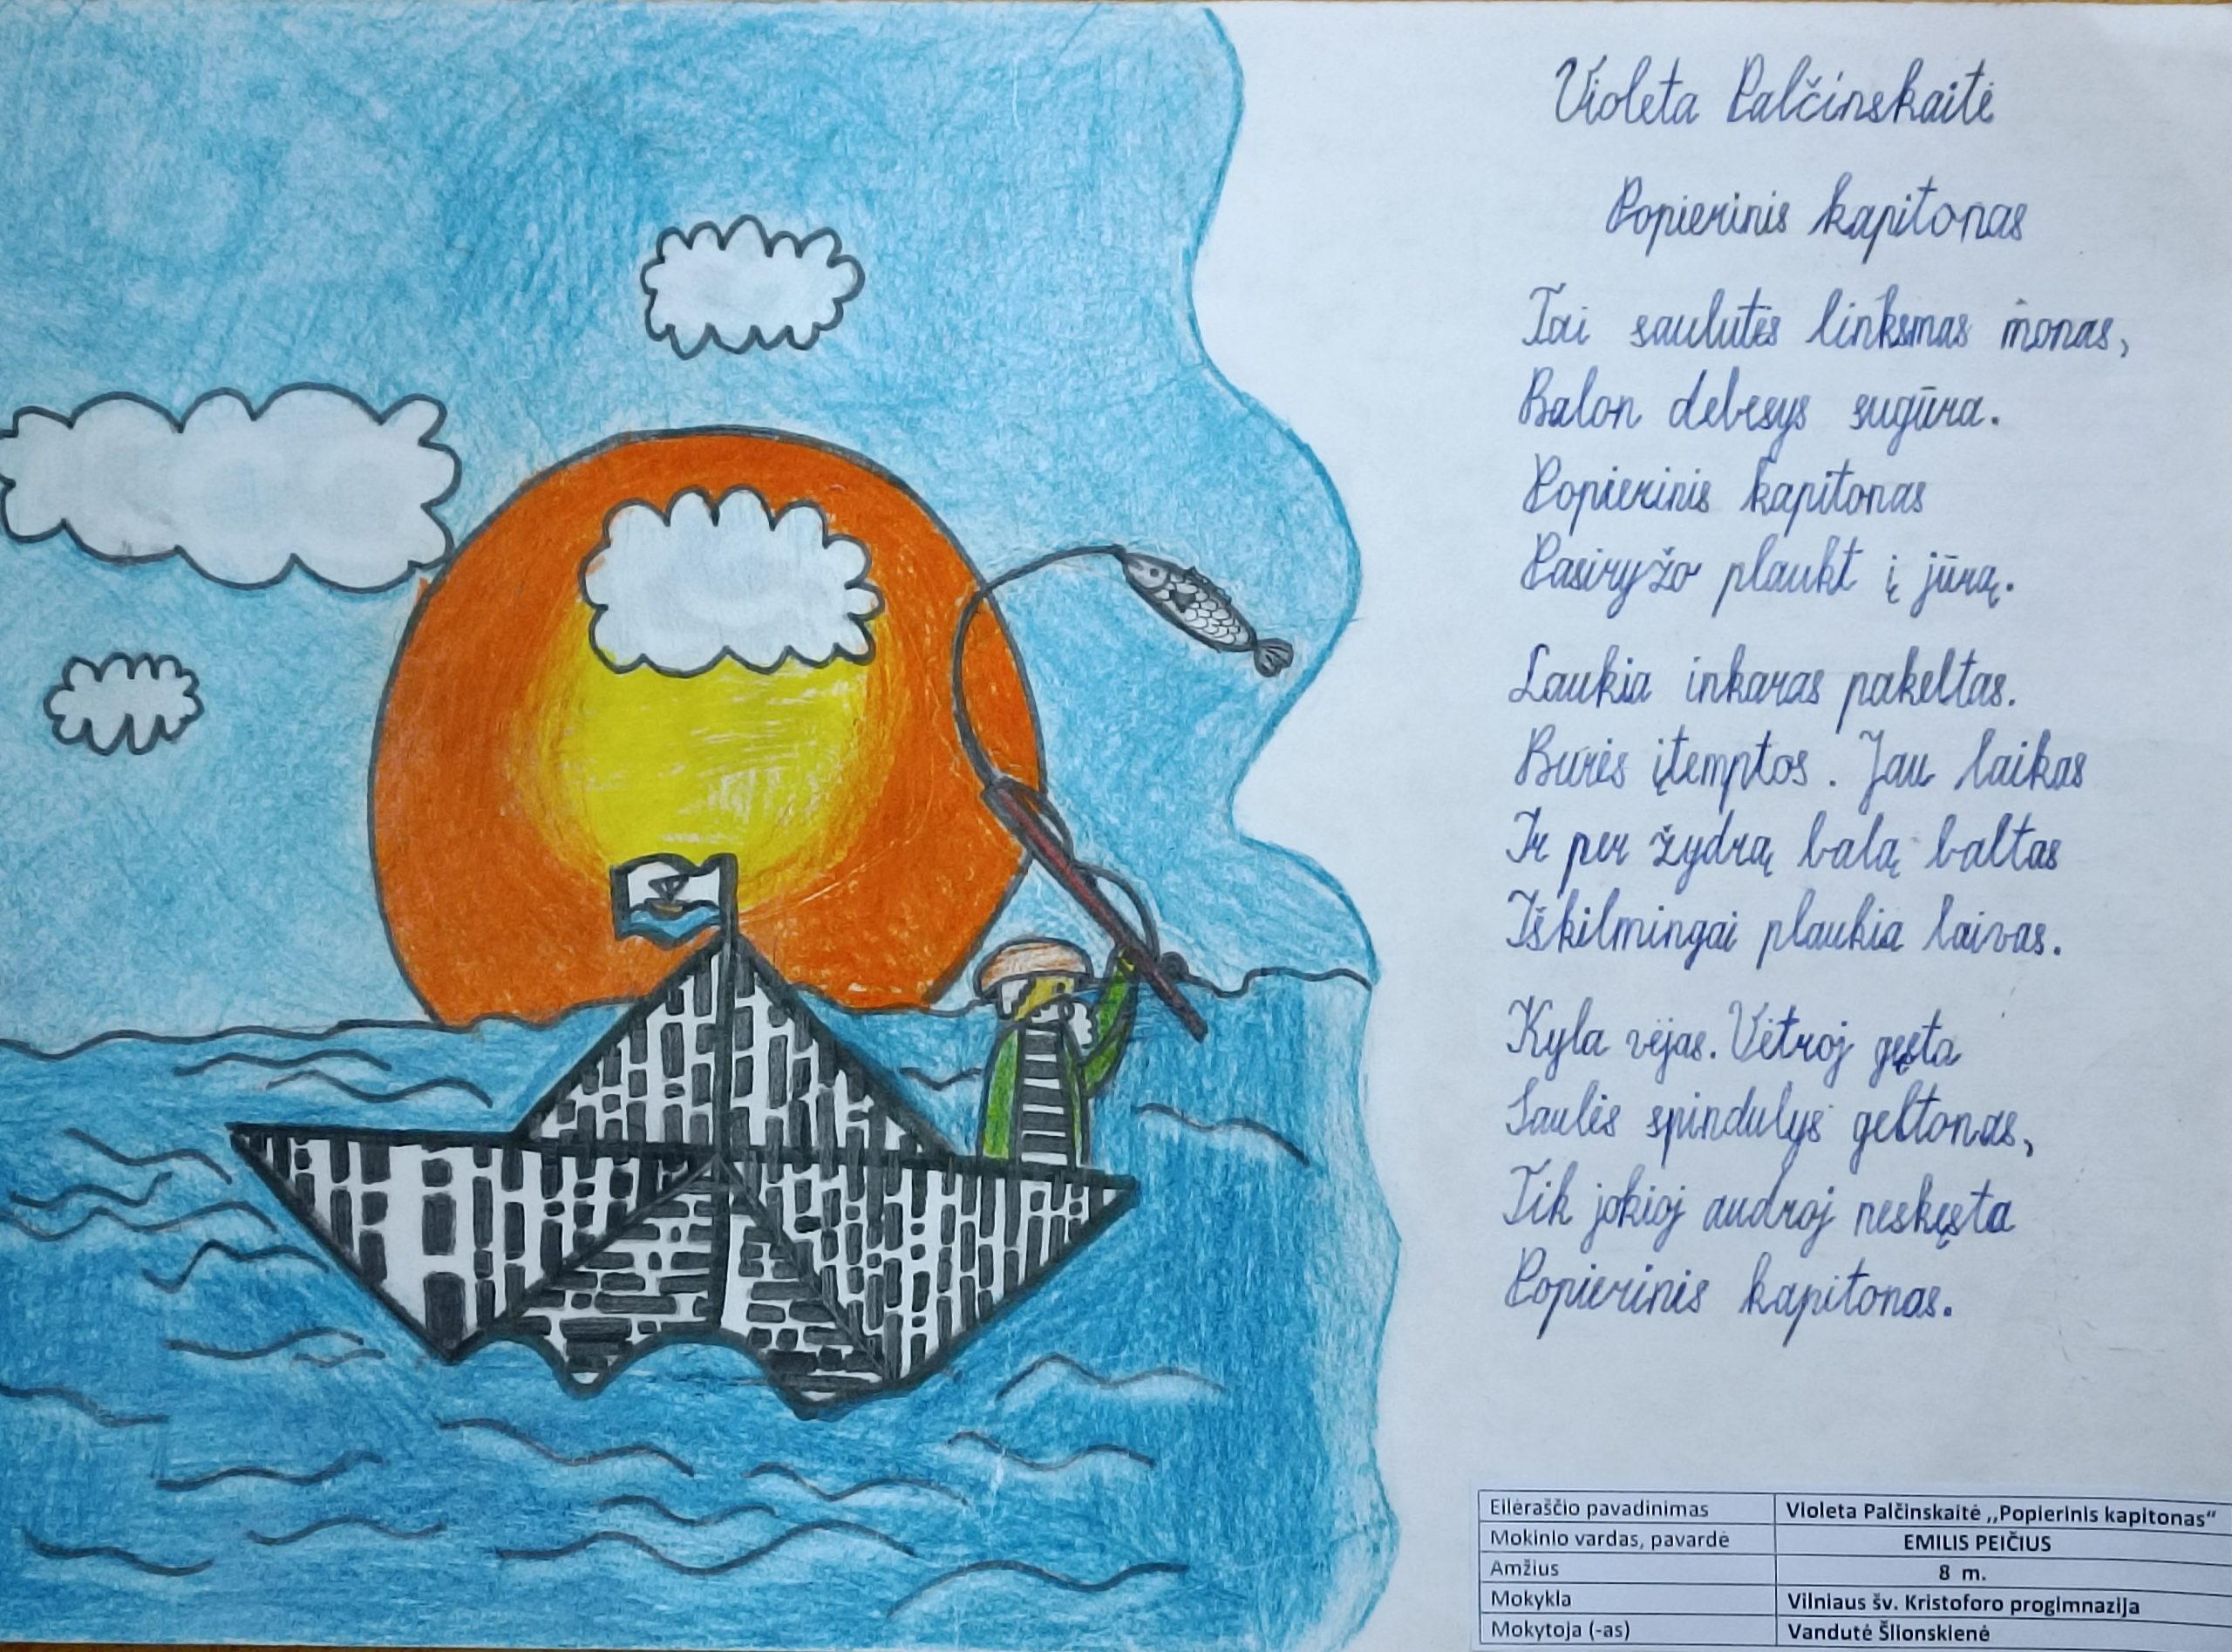 Violeta Palčinskaitė
Popierinis kapitonas
Tai saulutės linksmas monas,
Balon debesys sugūra.
Popierinis kapitonas
Pasiryžo plaukt į jūrą.
Laukia inkaras pakeltas.
Burės įtemptos. Jau laikas
Ir per žydrą balą baltas
Iškilmingai plaukia laivas.
Kyla vėjas. Vėtroj gęsta
Saulės spindulys geltonas,
Tik jokioj audroj neskęsta
Popierinis kapitonas.
Eilėraščio pavadinimas Violeta Palčinskaitė ,,Popierinis kapitonas“
Mokinio vardas, pavardė EMILIS PEIČIUS
Amžius 8 m.
Mokykla Vilniaus šv. Kristoforo progimnazija
Mokytoja (-as) Vandutė Šlionskienė